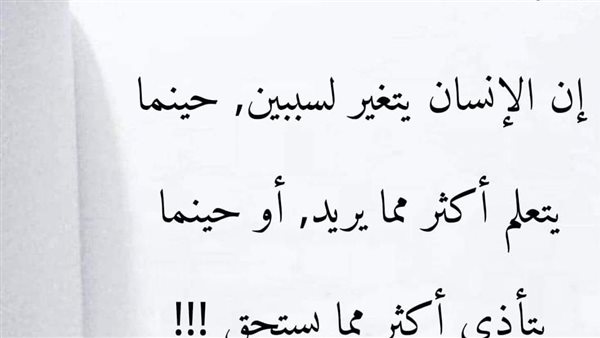 إن الإنسان يتغير لسببين, حينما
يتعلم أكثر مما يريد, أو حينما
يتأذى أكثر مما يستحق !!!